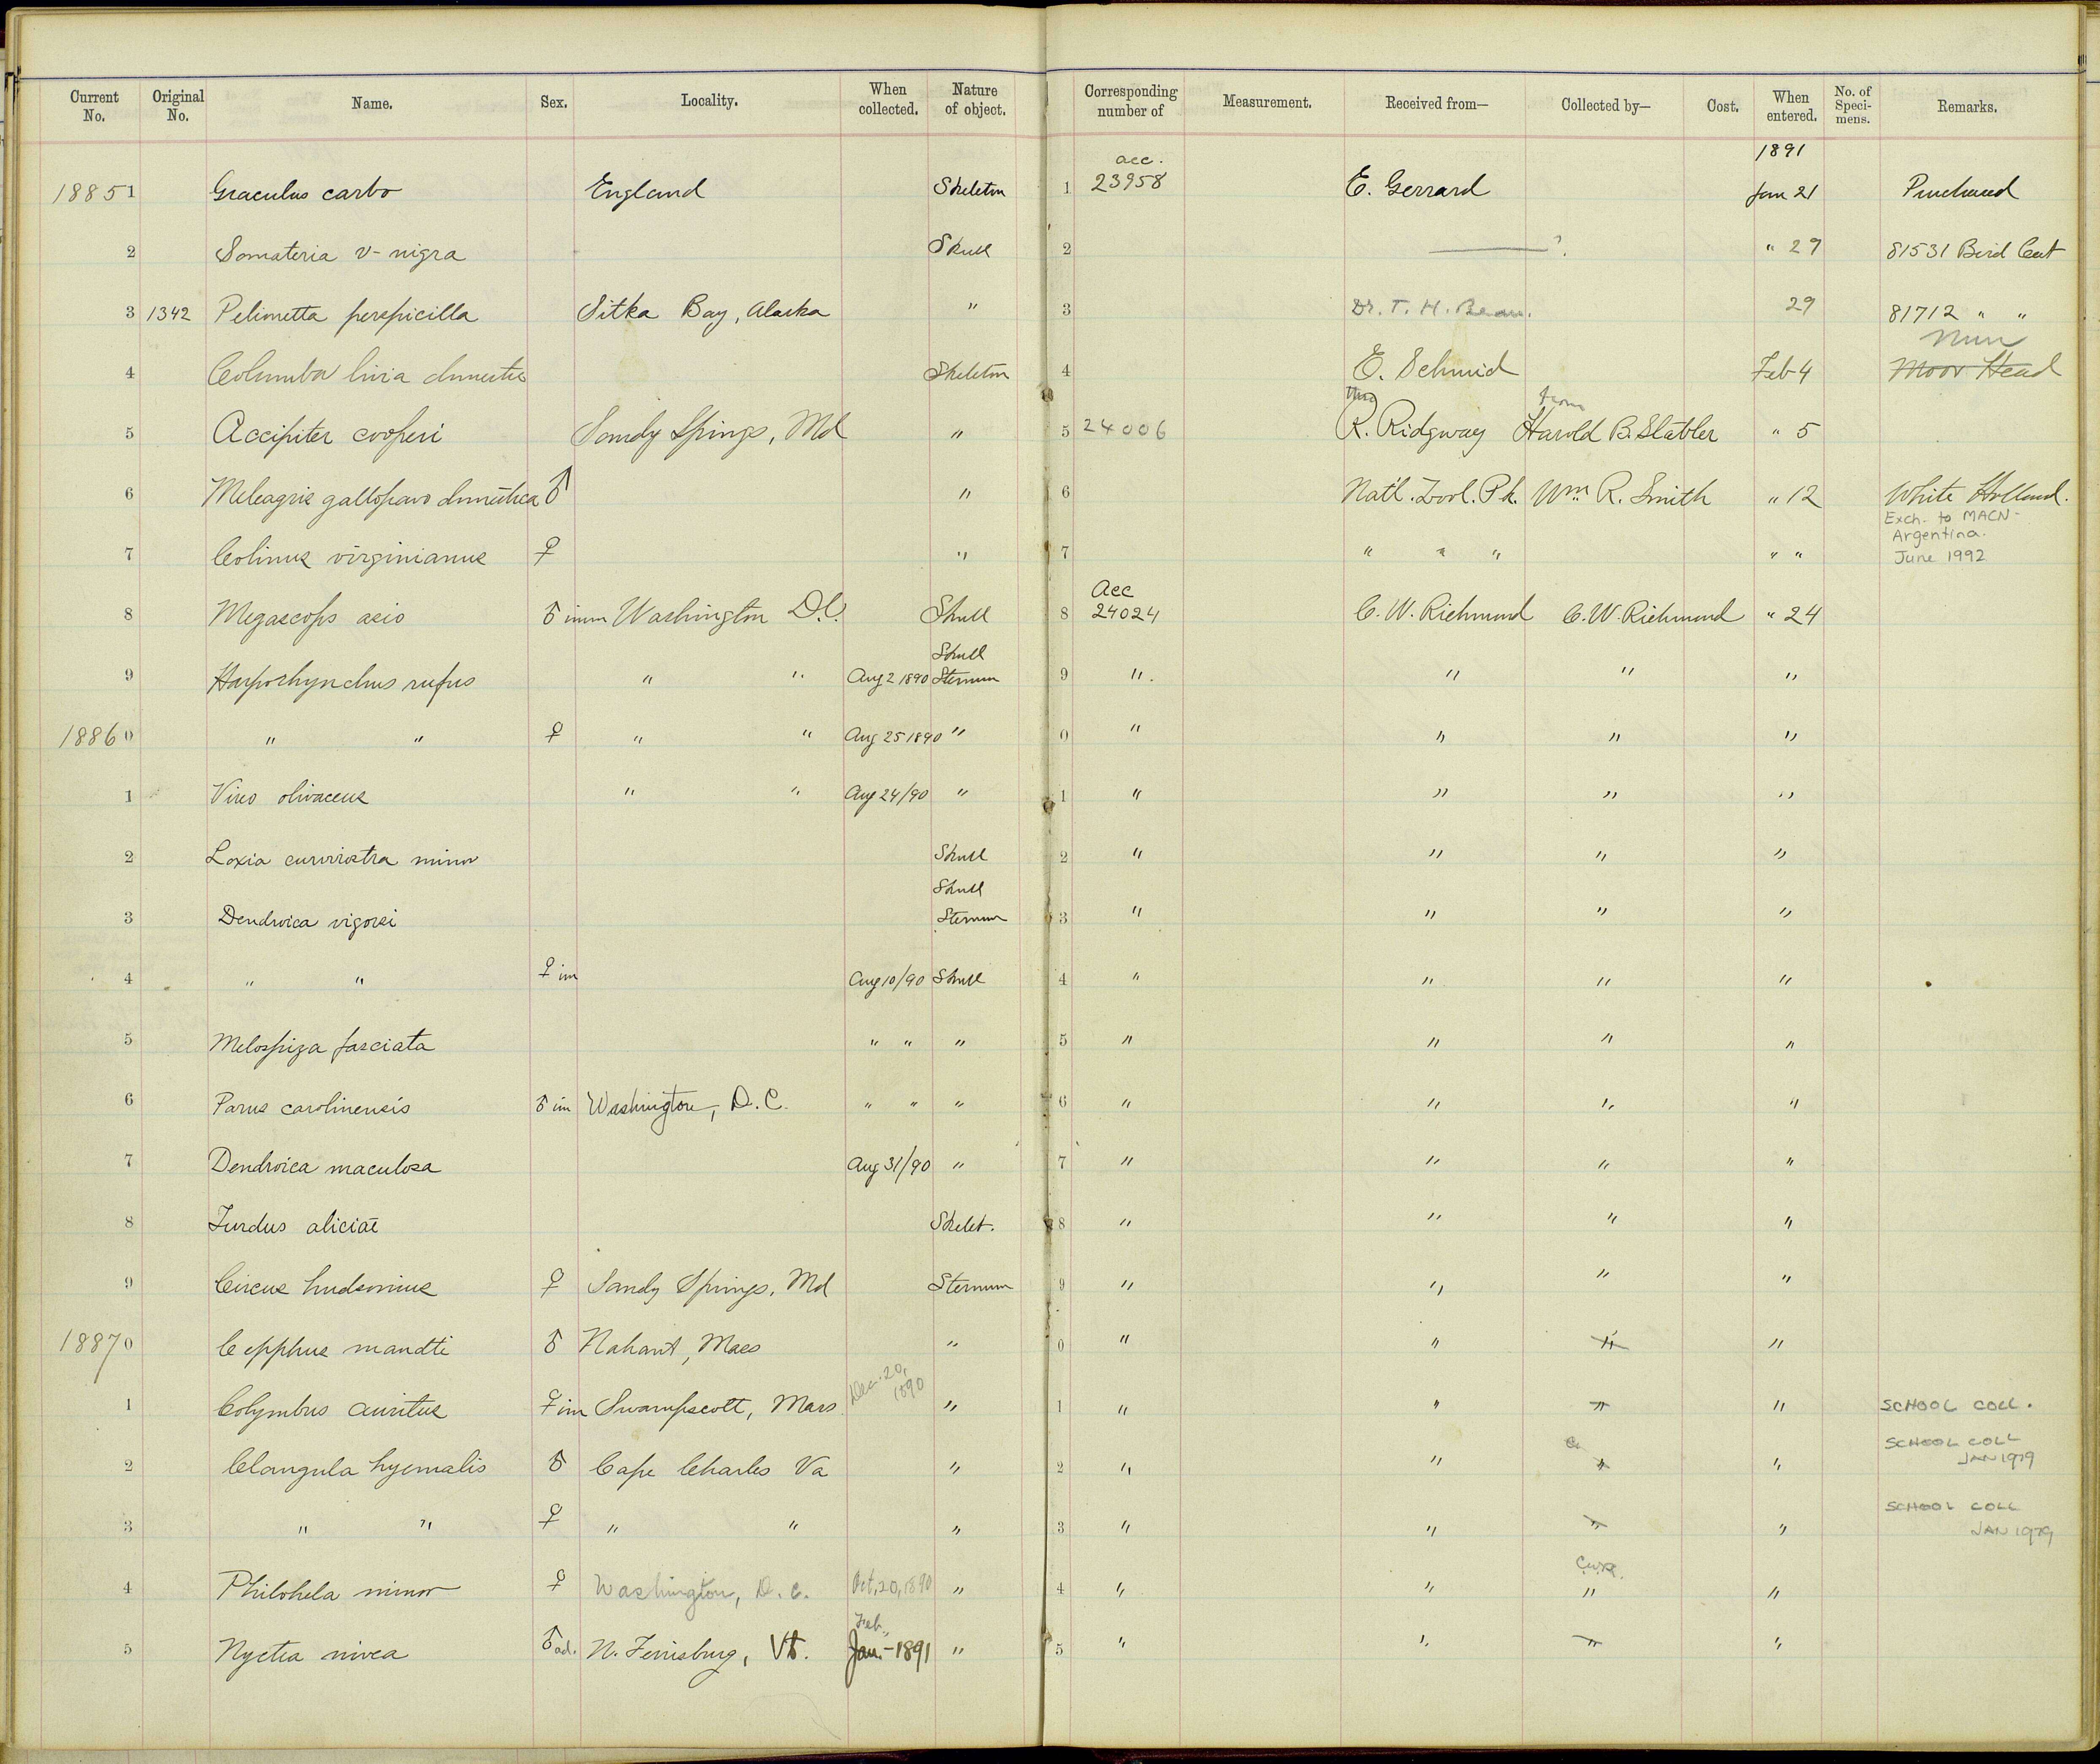 Current No. Original No. Name. Sex. Locality. When collected. Nature of object. Corresponding number of Measurement. Received from— Collected by— Cost. When entered. No. of Speci-mens. Remarks.
acc. 1891
18851 Graculus carbo England Skeleton 1 23958 E. Gerrard Jan 21 Purchased
2 Somateria v-nigra Skull 2 ——? " 29 81531 Bird Cat
3 1342 Pelionetta perspicilla Sitka Bay, Alaska " 3 Dr. T. H. Bean. 29 81712 " "
Nun
4 Columba livia domestic Skeleton 4 E. Schmid Feb 4 Moor Head
thro from
5 Accipiter cooperi Sandy Springs, Md " 5 24006 R. Ridgway Harold B. Stabler " 5
6 Meleagris gallopavo domestica ♂ " 6 Nat'l. Zool. Pk. Wm. R. Smith " 12 White Holland.
Exch. to MACN-
Argentina.
7 Colinus virginianus ♀ " 7 " " " " " June 1992
Acc
8 Megascops asio ♂ imm Washington D.C. Skull 8 24024 C. W. Richmond C. W. Richmond " 24
Skull
9 Harporhynchus rufus " " Aug 2 1890 Sternum 9 " " " "
18860 " " ♀ " " Aug 25 1890 " 0 " " " "
1 Vireo olivaceus " " Aug 24/90 " 1 " " " "
2 Loxia curvirostra minor Skull 2 " " " "
Skull
3 Dendroica vigorsi Sternum 3 " " " "
4 " " ♀ im Aug 10/90 Skull 4 " " " "
5 Melospiza fasciata " " " 5 " " " "
6 Parus carolinensis ♂ im Washington, D.C. " " " 6 " " " "
7 Dendroica maculosa Aug 31/90 " 7 " " " "
8 Turdus aliciae Skelet. 8 " " " "
9 Circus hudsonius ♀ Sandy Springs, Md Sternum 9 " " " "
18870 Cepphus mandti ♂ Nahant, Mass " 0 " " " "
Dec. 20, 1890
1 Colymbus auritus ♀ im Swampscott, Mass " 1 " " " " SCHOOL COLL.
SCHOOL COLL
2 Clangula hyemalis ♂ Cape Charles Va " 2 " " " " JAN 1979
SCHOOL COLL
3 " " ♀ " " " 3 " " " " JAN 1979
4 Philohela minor ♀ Washington, D.C. Oct, 20, 1890 " 4 " " " "
Feb.
5 Nyctea nivea ♂ ad. N. Ferrisburg, Vt. Jan - 1891 " 5 " " " "